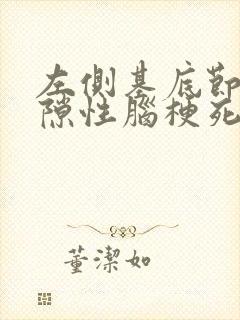 左側基底節
隙性腦梗死
董潔如